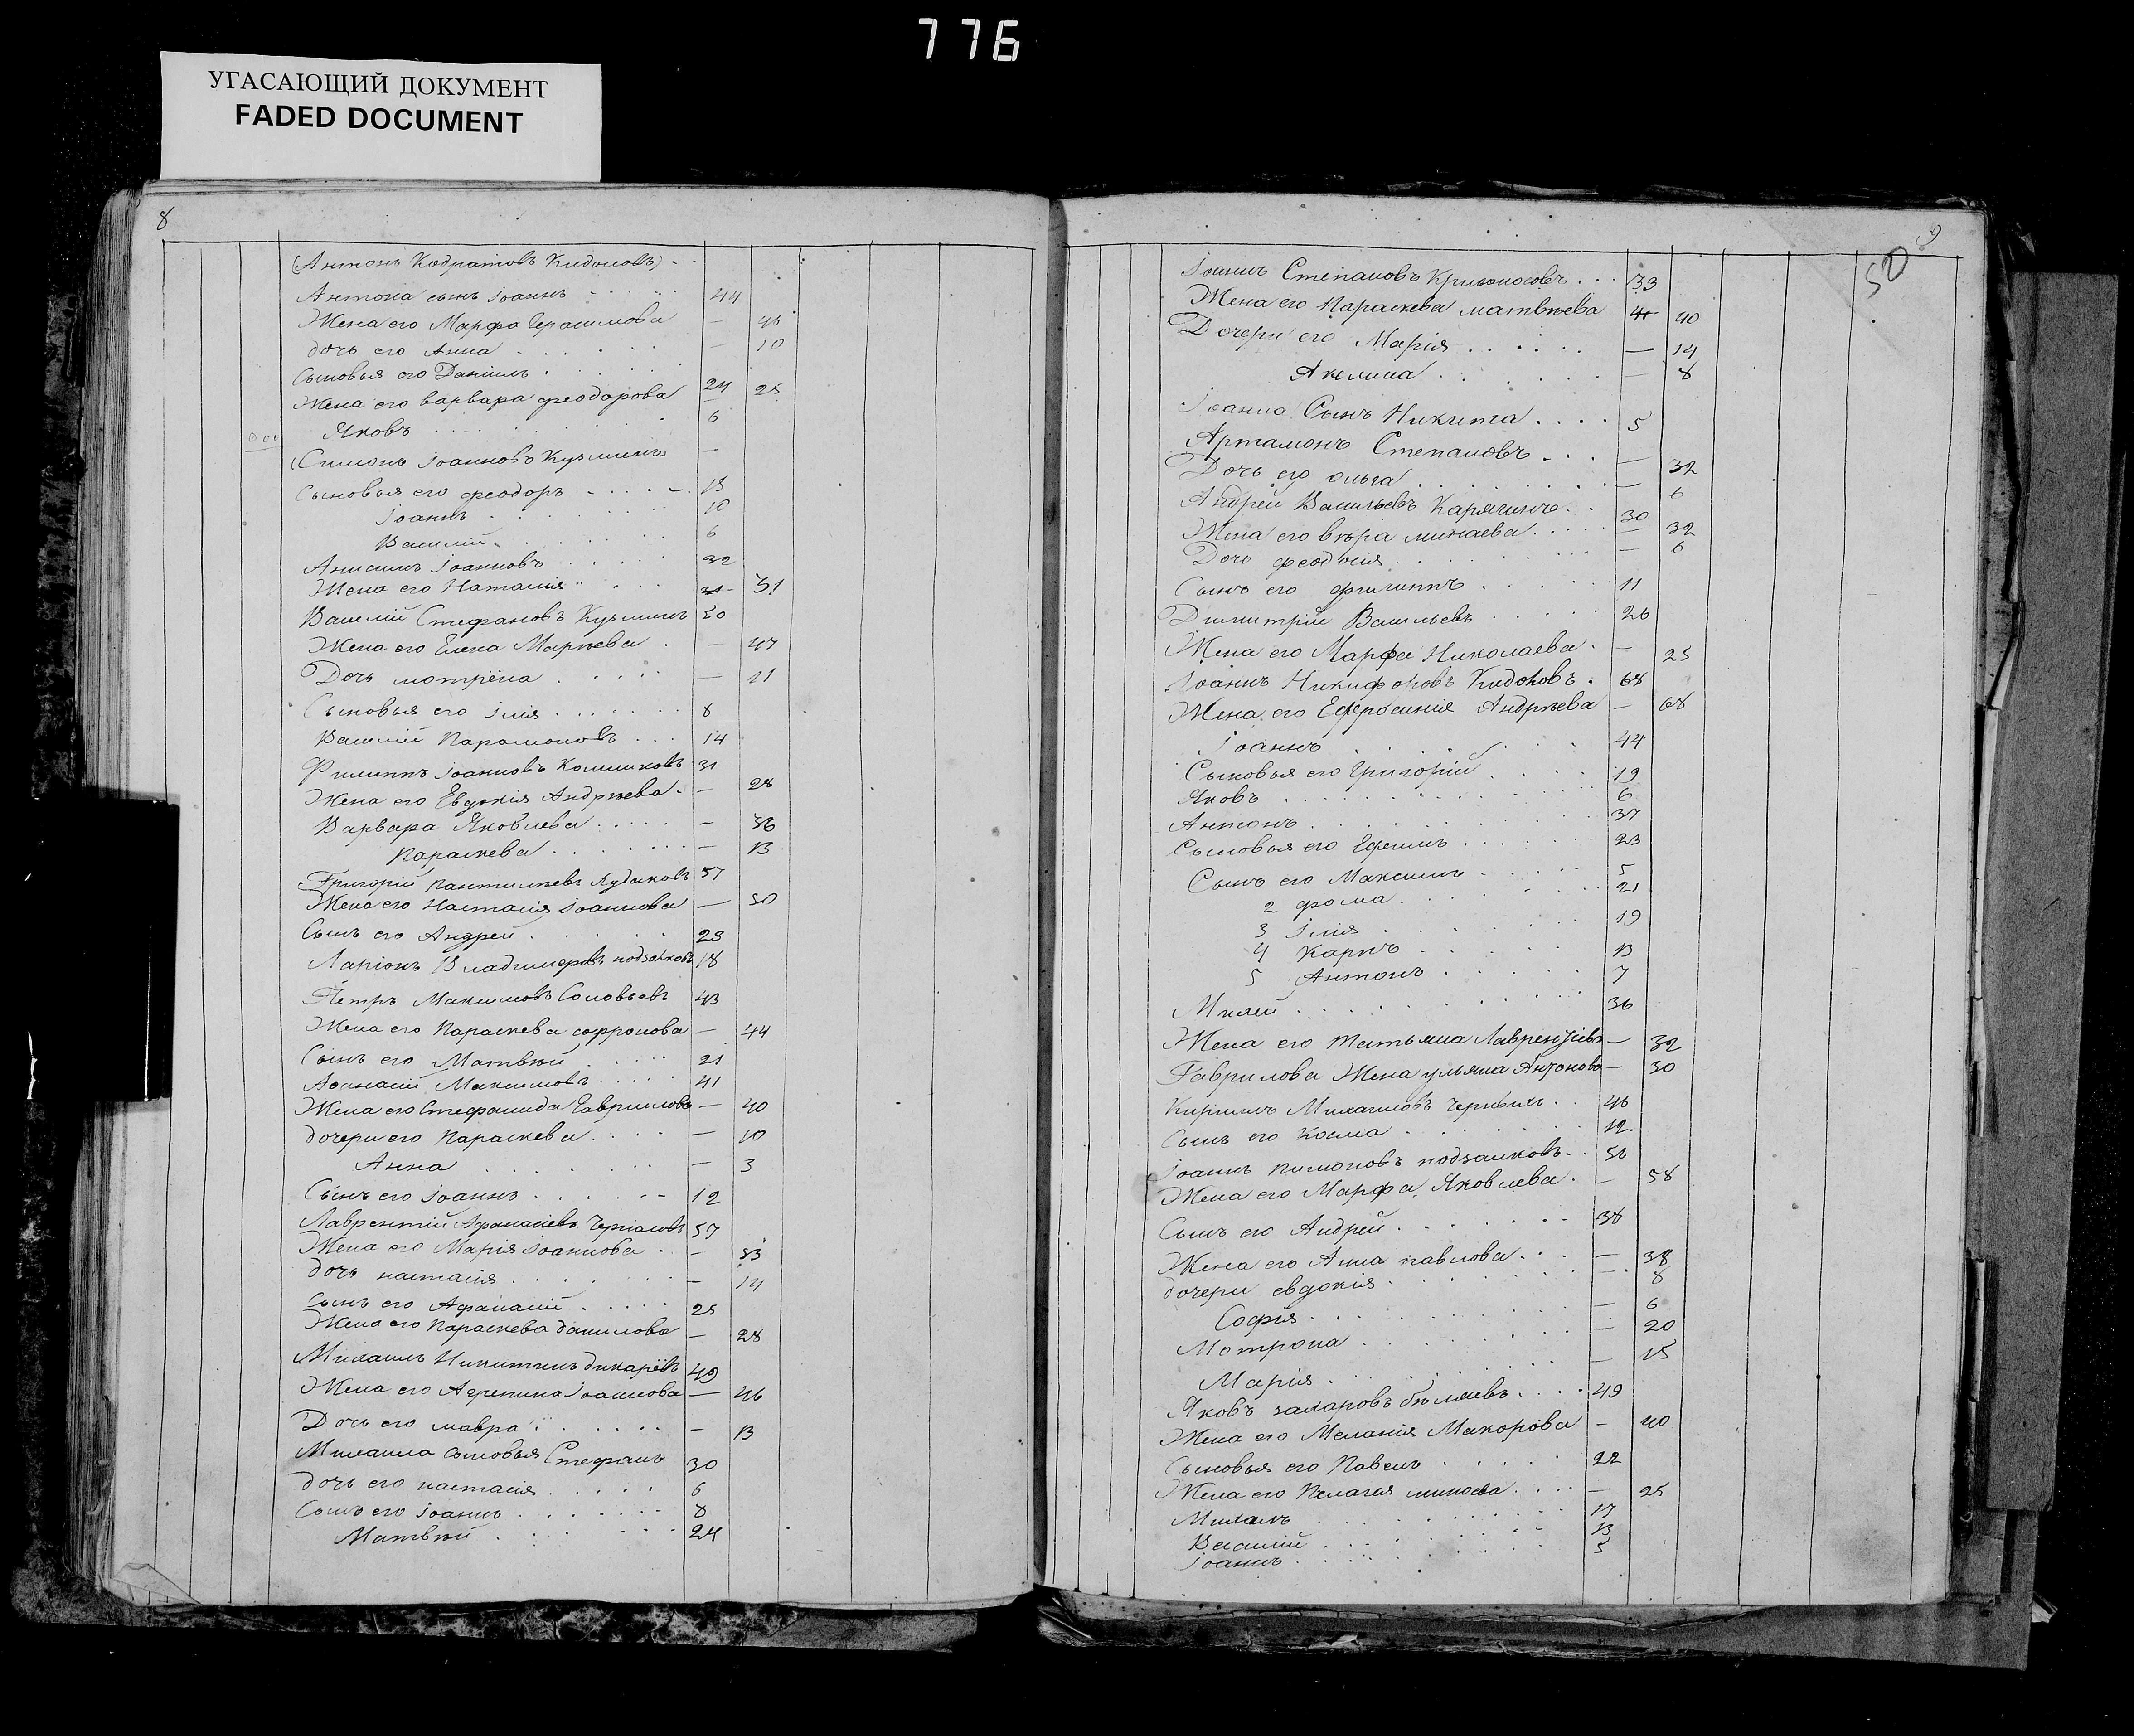 776
УГАСАЮЩИЙ ДОКУМЕНТ
FADED DOCUMENT
8
(Антонъ Кодратовъ Кидоновъ)
Антона сынъ Іоаннъ 44
Жена его Марфа Герасимова — 46
дочь его Анна — 10
Сыновья его Даніилъ 24
Жена его варвара феодорова — 25
Яковъ 6
(Симонъ Іоанновъ Кузминъ —
Сыновья его феодоръ 13
Іоаннъ 10
Василій 6
Анисимъ Іоанновъ 32
Жена его Наталия 31
Василій Стефановъ Кузминъ 50
Жена его Елена Маркѣева — 47
Дочь мотрёна — 21
Сыновья его Ілія 8
Василій Парамоновъ 14
Филиппъ Іоанновъ Калининъ 31
Жена его Евдокія Андрѣева — 28
Варвара Яковлева — 36
Параскева — 13
Григорій Пантилѣевъ 57
Жена его Настасія Іоаннова — 50
Сынъ его Андрей 23
Ларіонъ Владимеровъ подзаиковъ 18
Петръ Максимовъ Соловьевъ 43
Жена его Параскева софронова — 44
Сынъ его Матвѣй 21
Афанасій Максимовъ 41
Жена его Стефанида Гаврилова — 40
дочери его Параскева — 10
Анна — 3
Сынъ его Іоаннъ 12
Лаврентій Афанасіевъ 57
Жена его Марія Іоаннова — 53
дочь настасія — 14
Сынъ его Афанасій 25
Жена его Параскева данилова — 28
Михаилъ Никитинъ дикарёвъ 49
Жена его Агрепина Іоаннова — 46
Дочь его мавра — 13
Михаила сыновья Стефанъ 30
дочь его настасія 6
Сынъ его Іоаннъ 8
Матвѣй 24
9
50
Іоаннъ Степановъ Кривоносовъ 33
Жена его Параскева матвѣева 40
Дочери его Марія — 14
Акелина — 8
Іоанна Сынъ Никита 5
Артамонъ Степановъ — 32
Дочь его ольга — 6
Андрей Васильевъ Карягинъ 30
Жена его вѣра минаева — 32
Дочь феодосія — 6
Сынъ его филиппъ 11
Димитрій Васильевъ 26
Жена его Марфа Николаева — 25
Іоаннъ Никифоровъ Кидоновъ 68
Жена его Ефросинія Андрѣева — 68
Іоаннъ 44
Сыновья его Григорій 19
Яковъ 6
Антонъ 37
Сыновья его Ефимъ 23
Сынъ его Максимъ 5
2 фома 21
3 Ілія 19
4 Карпъ 13
5 Антонъ 7
Михей 36
Жена его татьяна Лаврентіева — 32
Гаврилова Жена ульяна Антонова — 30
Кирилъ Михаиловъ 46
Сынъ его Косма 12
Іоаннъ пимоновъ подзаиковъ 56
Жена его Марфа Яковлева — 58
Сынъ его Андрей 38
Жена его Анна павлова — 38
дочери евдокія — 8
Софія — 6
Мотрона — 20
Марія — 15
Яковъ захаровъ бѣляевъ 49
Жена его Меланія Макорова — 40
Сыновья его Павелъ 22
Жена его Пелагея минаева — 25
Михаилъ 17
Василій 13
Іоаннъ 5